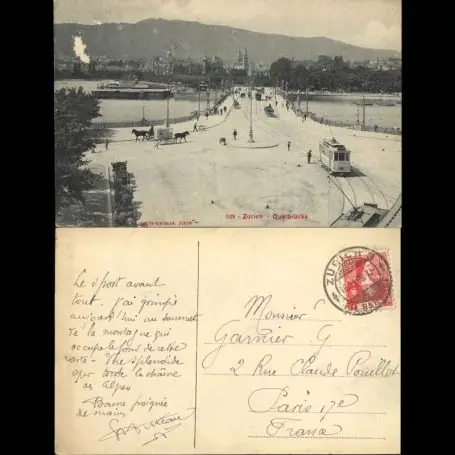 328 - Zürich - Quaibrücke
ZÜRICH
Le sport avant
tout. J'ai grimpé
aujourd'hui au sommet
de la montagne qui
occupe le fond de cette
carte - Vue splendide
sur toute la chaîne
des Alpes
Bonne poignée
de main
Monsieur
Garnier G
2 Rue Claude Pouillet
Paris 17e
France